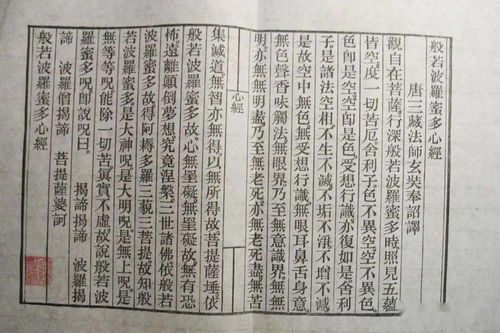 般若波羅蜜多心經
唐三藏法師玄奘奉詔譯
觀自在菩薩。行深般若波羅蜜多時。照見五蘊
皆空。度一切苦厄。舍利子。色不異空。空不異色。
色即是空。空即是色。受想行識。亦復如是。舍利
子。是諸法空相。不生不滅。不垢不淨。不增不減。
是故空中無色。無受想行識。無眼耳鼻舌身意。
無色聲香味觸法。無眼界。乃至無意識界。無無
明。亦無無明盡。乃至無老死。亦無老死盡。無苦
心經
集滅道。無智亦無得。以無所得故。菩提薩埵。依
般若波羅蜜多故。心無罣礙。無罣礙故。無有恐
怖。遠離顛倒夢想。究竟涅槃。三世諸佛。依般若
波羅蜜多故。得阿耨多羅三藐三菩提。故知般
若波羅蜜多。是大神呪。是大明呪。是無上呪。是
無等等呪。能除一切苦。真實不虛。故說般若波
羅蜜多呪。即說呪曰。 揭諦揭諦 波羅揭
諦 波羅僧揭諦 菩提薩婆訶
般若波羅蜜多心經